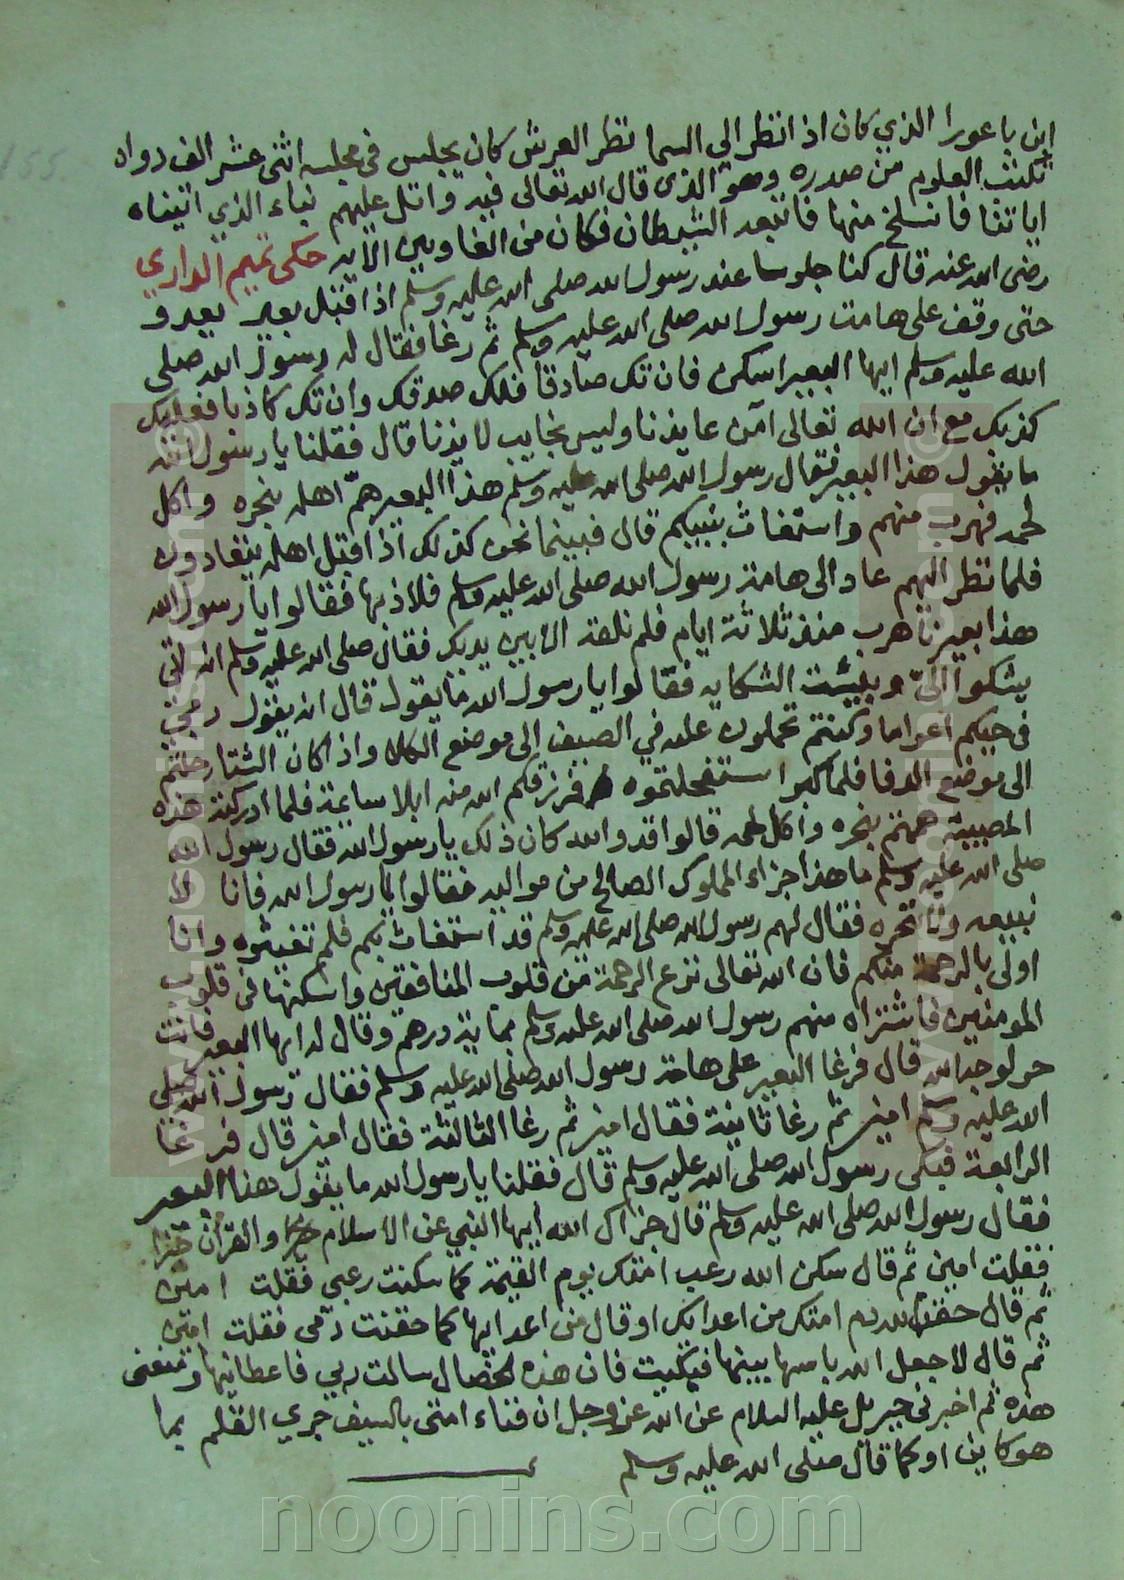 ابن باعورا الذي كان اذا نظر الي السما نظر العرش كان يجلس في مجلسه اثنى عشر الف دواه
تكتب العلوم من صدره وهو الذي قال الله تعالى فيه واتل عليهم نباء الذي اتيناه
اياتنا فانسلخ منها فاتبعه الشيطان فكان من الغاوين الايه حكى تميم الداري
رضى الله عنه قال كنا جلوسا عند رسول الله صلى الله عليه وسلم اذا قبل بعير يعدو
حتى وقف على هامت رسول الله صلى الله عليه وسلم ثم رغا فقال له رسول الله صلى
الله عليه وسلم ايها البعير اسكن فان تك صادقا فلك صدقك وان تك كاذبا فعليك
كذبك مع ان الله تعالى آمن عايذنا وليس بخايب لايذنا قال فقلنا يا رسول الله
ما يقول هذا البعير فقال رسول الله صلى الله عليه وسلم هذا البعير همّ اهله بنحره واكل
لحمه فهرب منهم واستغاث بنبيكم قال فبينما نحن كذلك اذ اقبل اهله يتعادون
فلما نظر اليهم عاد الى هامة رسول الله صلى الله عليه وسلم فلاذ بها فقالوا يا رسول الله
هذا بعيرنا هرب منذ ثلاثة ايام فلم نلقه الا بين يديك فقال صلى الله عليه وسلم انه لاتى
يشكوا اليّ وبيئت الشكايه فقالوا يا رسول الله ما يقول قال انه يقول ربي
في حيكم اعواما وكنتم تحملون عليه في الصيف الى موضع الكلا واذا كان الشتا رحلتم
الى موضع الدفا فلما كبر استفحلتموه فرزقكم الله منه ابلا سايمة فلما ادركته هذه
الخصيبة هممتم بنحره واكل لحمه قالوا قد والله كان ذلك يا رسول الله فقال رسول الله
صلى الله عليه وسلم ما هذا جزاء المملوك الصالح من مواليه فقالوا يا رسول الله فانا لا
نبيعه ولا ننحره فقال لهم رسول الله صلى الله عليه وسلم قد استغاث بكم فلم تغيثوه وانا
اولى بالرحمة منكم فان الله تعالى نزع الرحمة من قلوب المنافقين واسكنها في قلوب
المومنين فاشتراه منهم رسول الله صلى الله عليه وسلم بماية درهم وقال له ايها البعير فانت
حر لوجه الله قال فرغا البعير على هامة رسول الله صلى الله عليه وسلم فقال رسول الله صلى
الله عليه وسلم امين ثم رغا ثانية فقال امين ثم رغا الثالثة فقال امين قال فرغا
الرابعة فبكى رسول الله صلى الله عليه وسلم قال فقلنا يا رسول الله ما يقول هذا البعير
فقال رسول الله صلى الله عليه وسلم قال جزاك الله ايها النبي عن الاسلام والقران خيرا
فقلت امين ثم قال سكن الله رعب امتك يوم القيمة كما سكنت رعبى فقلت امين
ثم قال حقن الله دم امتك من اعدايك او قال من اعدايها كما حقنت دمى فقلت امين
ثم قال لا جعل الله باسها بينها فبكيت فان هذه الخصال سالت ربي فاعطانيها ومنعنى
هذه ثم اخبرني جبريل عليه السلام عن الله عز وجل ان فناء امتى بالسيف جري القلم بما
هو كاين او كما قال صلى الله عليه وسلم
155
www.noonins.com ©
www.noonins.com ©
noonins.com